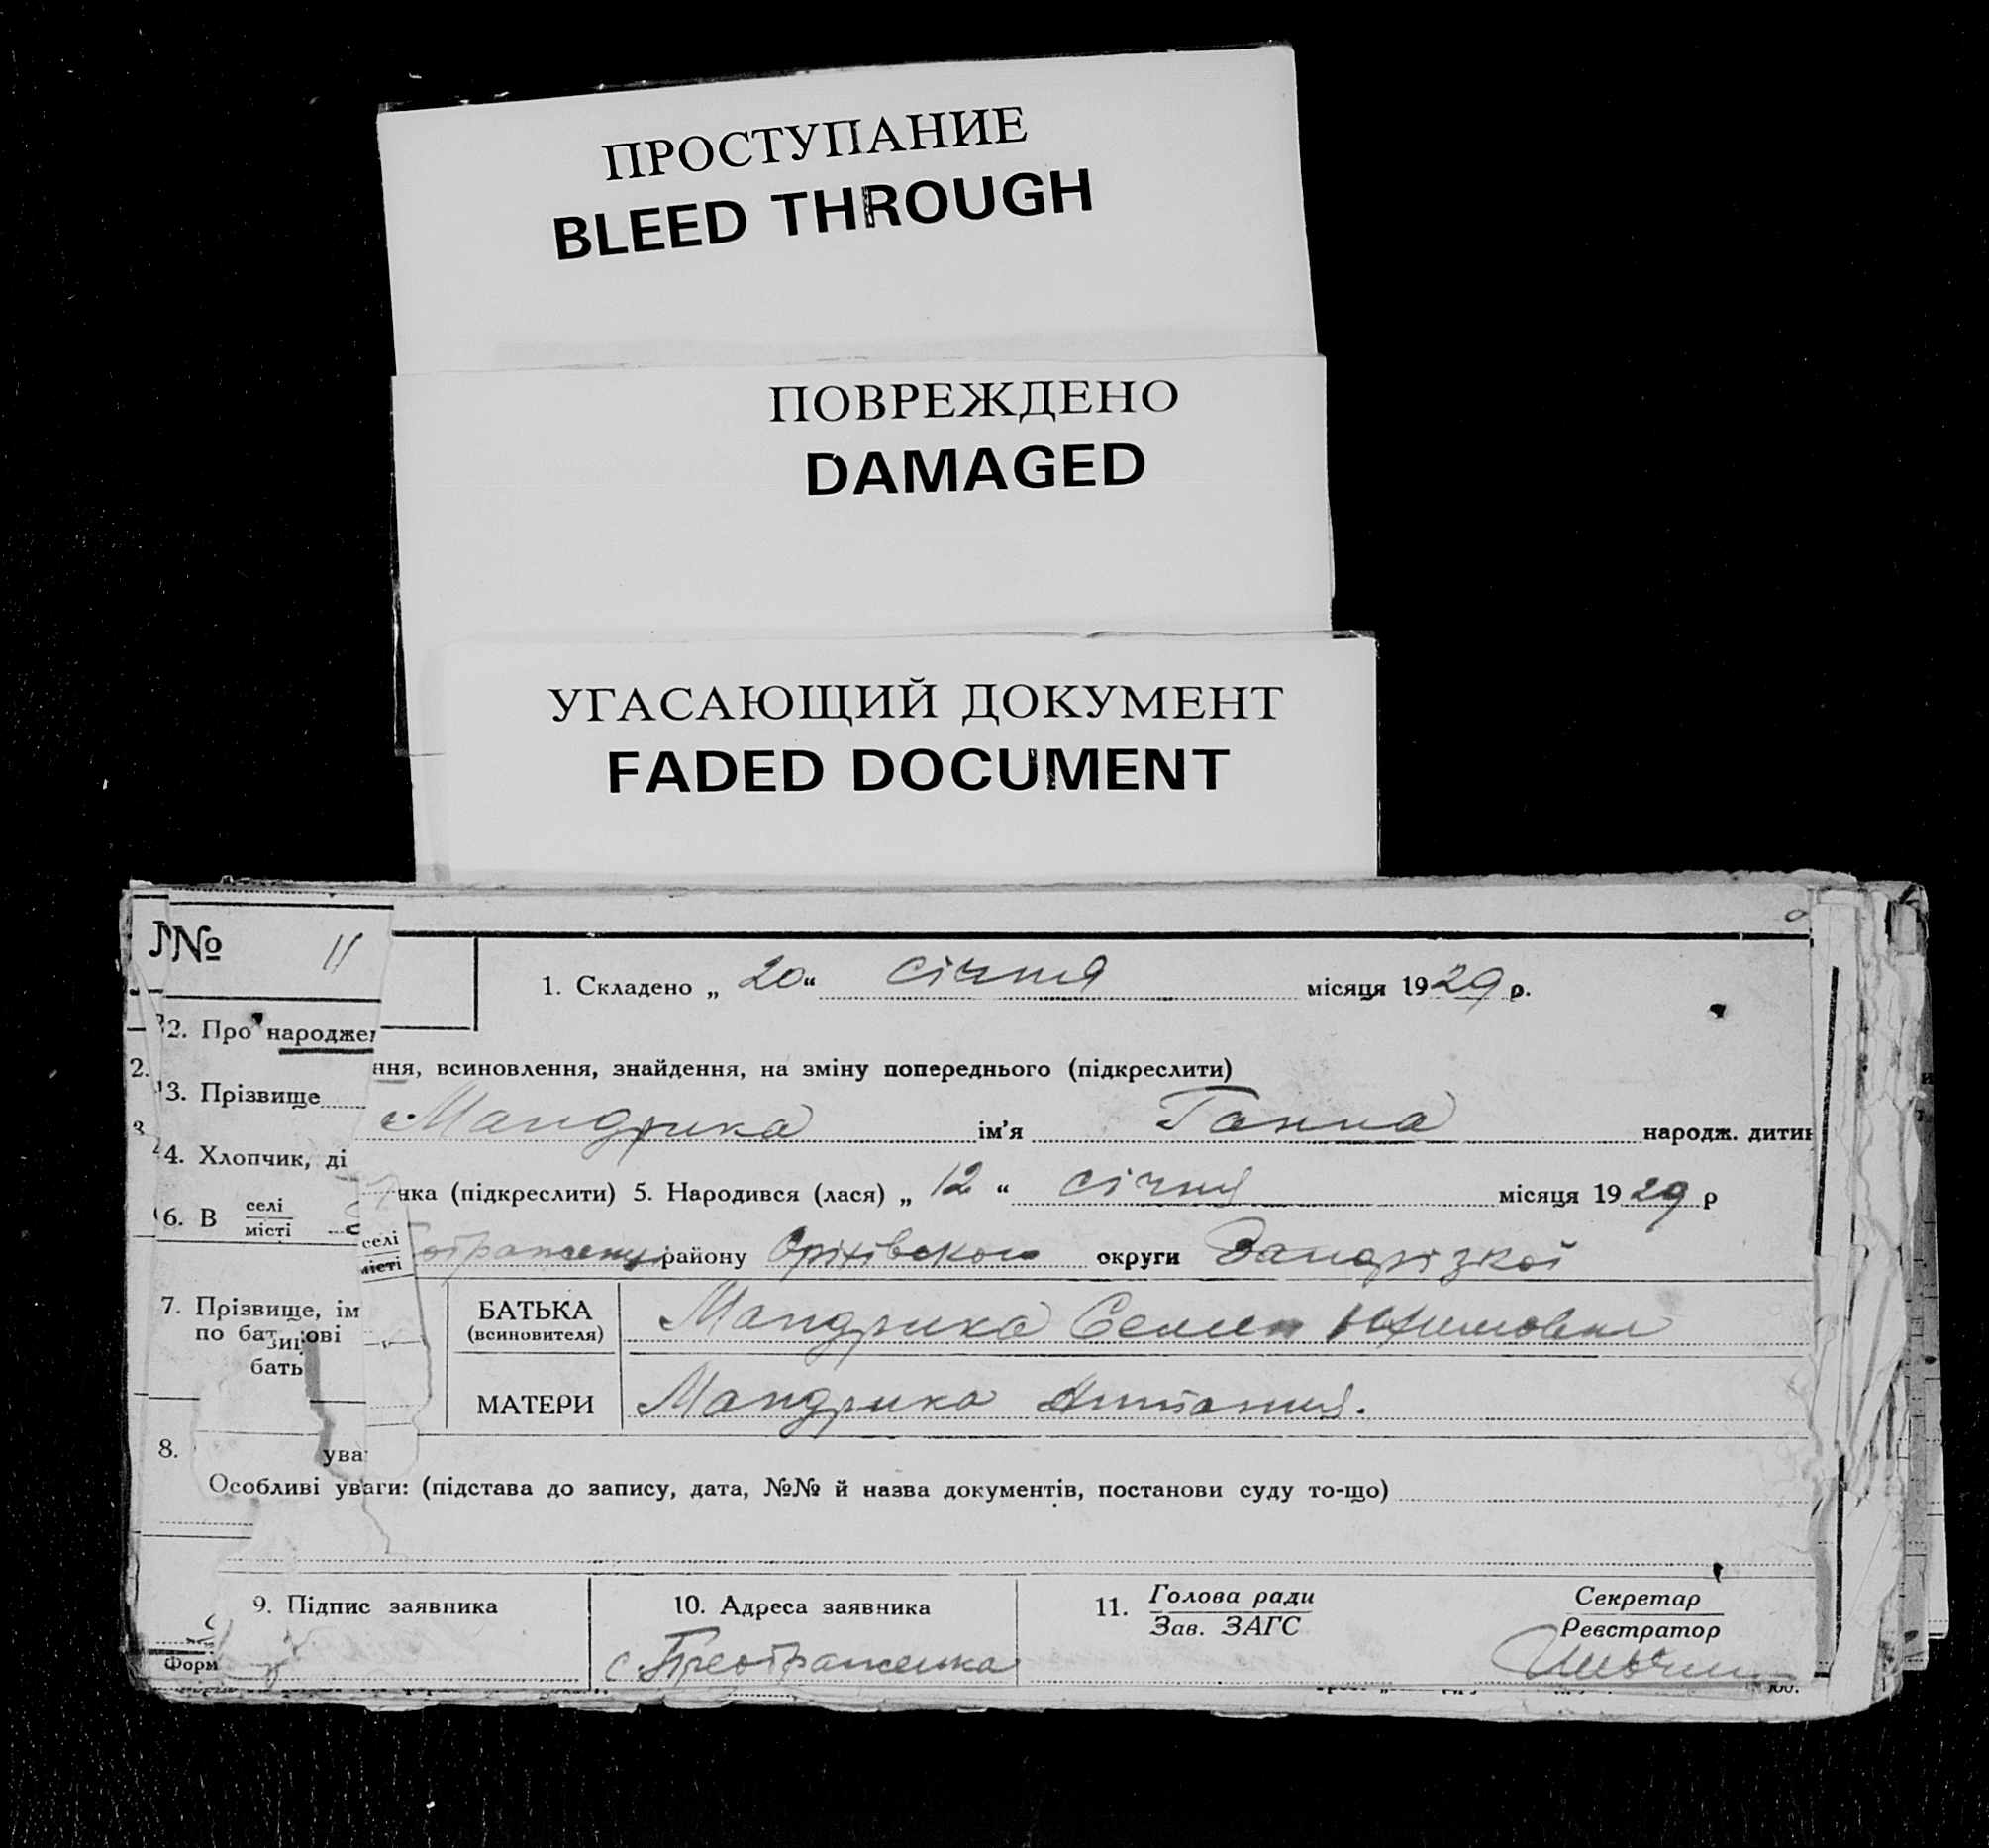 ПРОСТУПАНИЕ
BLEED THROUGH
ПОВРЕЖДЕНО
DAMAGED
УГАСАЮЩИЙ ДОКУМЕНТ
FADED DOCUMENT
№ 11
1. Складено „ 20 “ січня місяця 1929 р.
2. Про народже
ння, всиновлення, знайдення, на зміну попереднього (підкреслити)
3. Прізвище
Мандрика ім'я Ганна народж. дитин
4. Хлопчик, ді
нка (підкреслити) 5. Народився (лася) „ 12 “ січня місяця 1929 р
6. В селі
місті
селі
місті
району Оріхівського округи Запорізкої
7. Прізвище, ім
по бат ові
бать
БАТЬКА Мандрика Семен
(всиновителя)
МАТЕРИ Мандрика
8. ува
Особливі уваги: (підстава до запису, дата, №№ й назва документів, постанови суду то-що)
9. Підпис заявника
10. Адреса заявника
с. Преображенка
11. Голова ради
Зав. ЗАГС
Секретар
Реєстратор
Форм